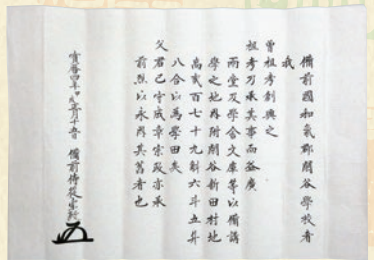 備前國和氣郡閑谷學校者
我
曾祖考創興之
祖考乃承其事而益廣
兩堂及學舎文庫等以備講
學之地界附閑谷新田村地
高貳百七十九斛六斗五升
八合以為學田矣
父君己守成章宗政亦承
前烈以永爲其舊者也
寳曆四年甲戌五月十五日 備前侍從宗政